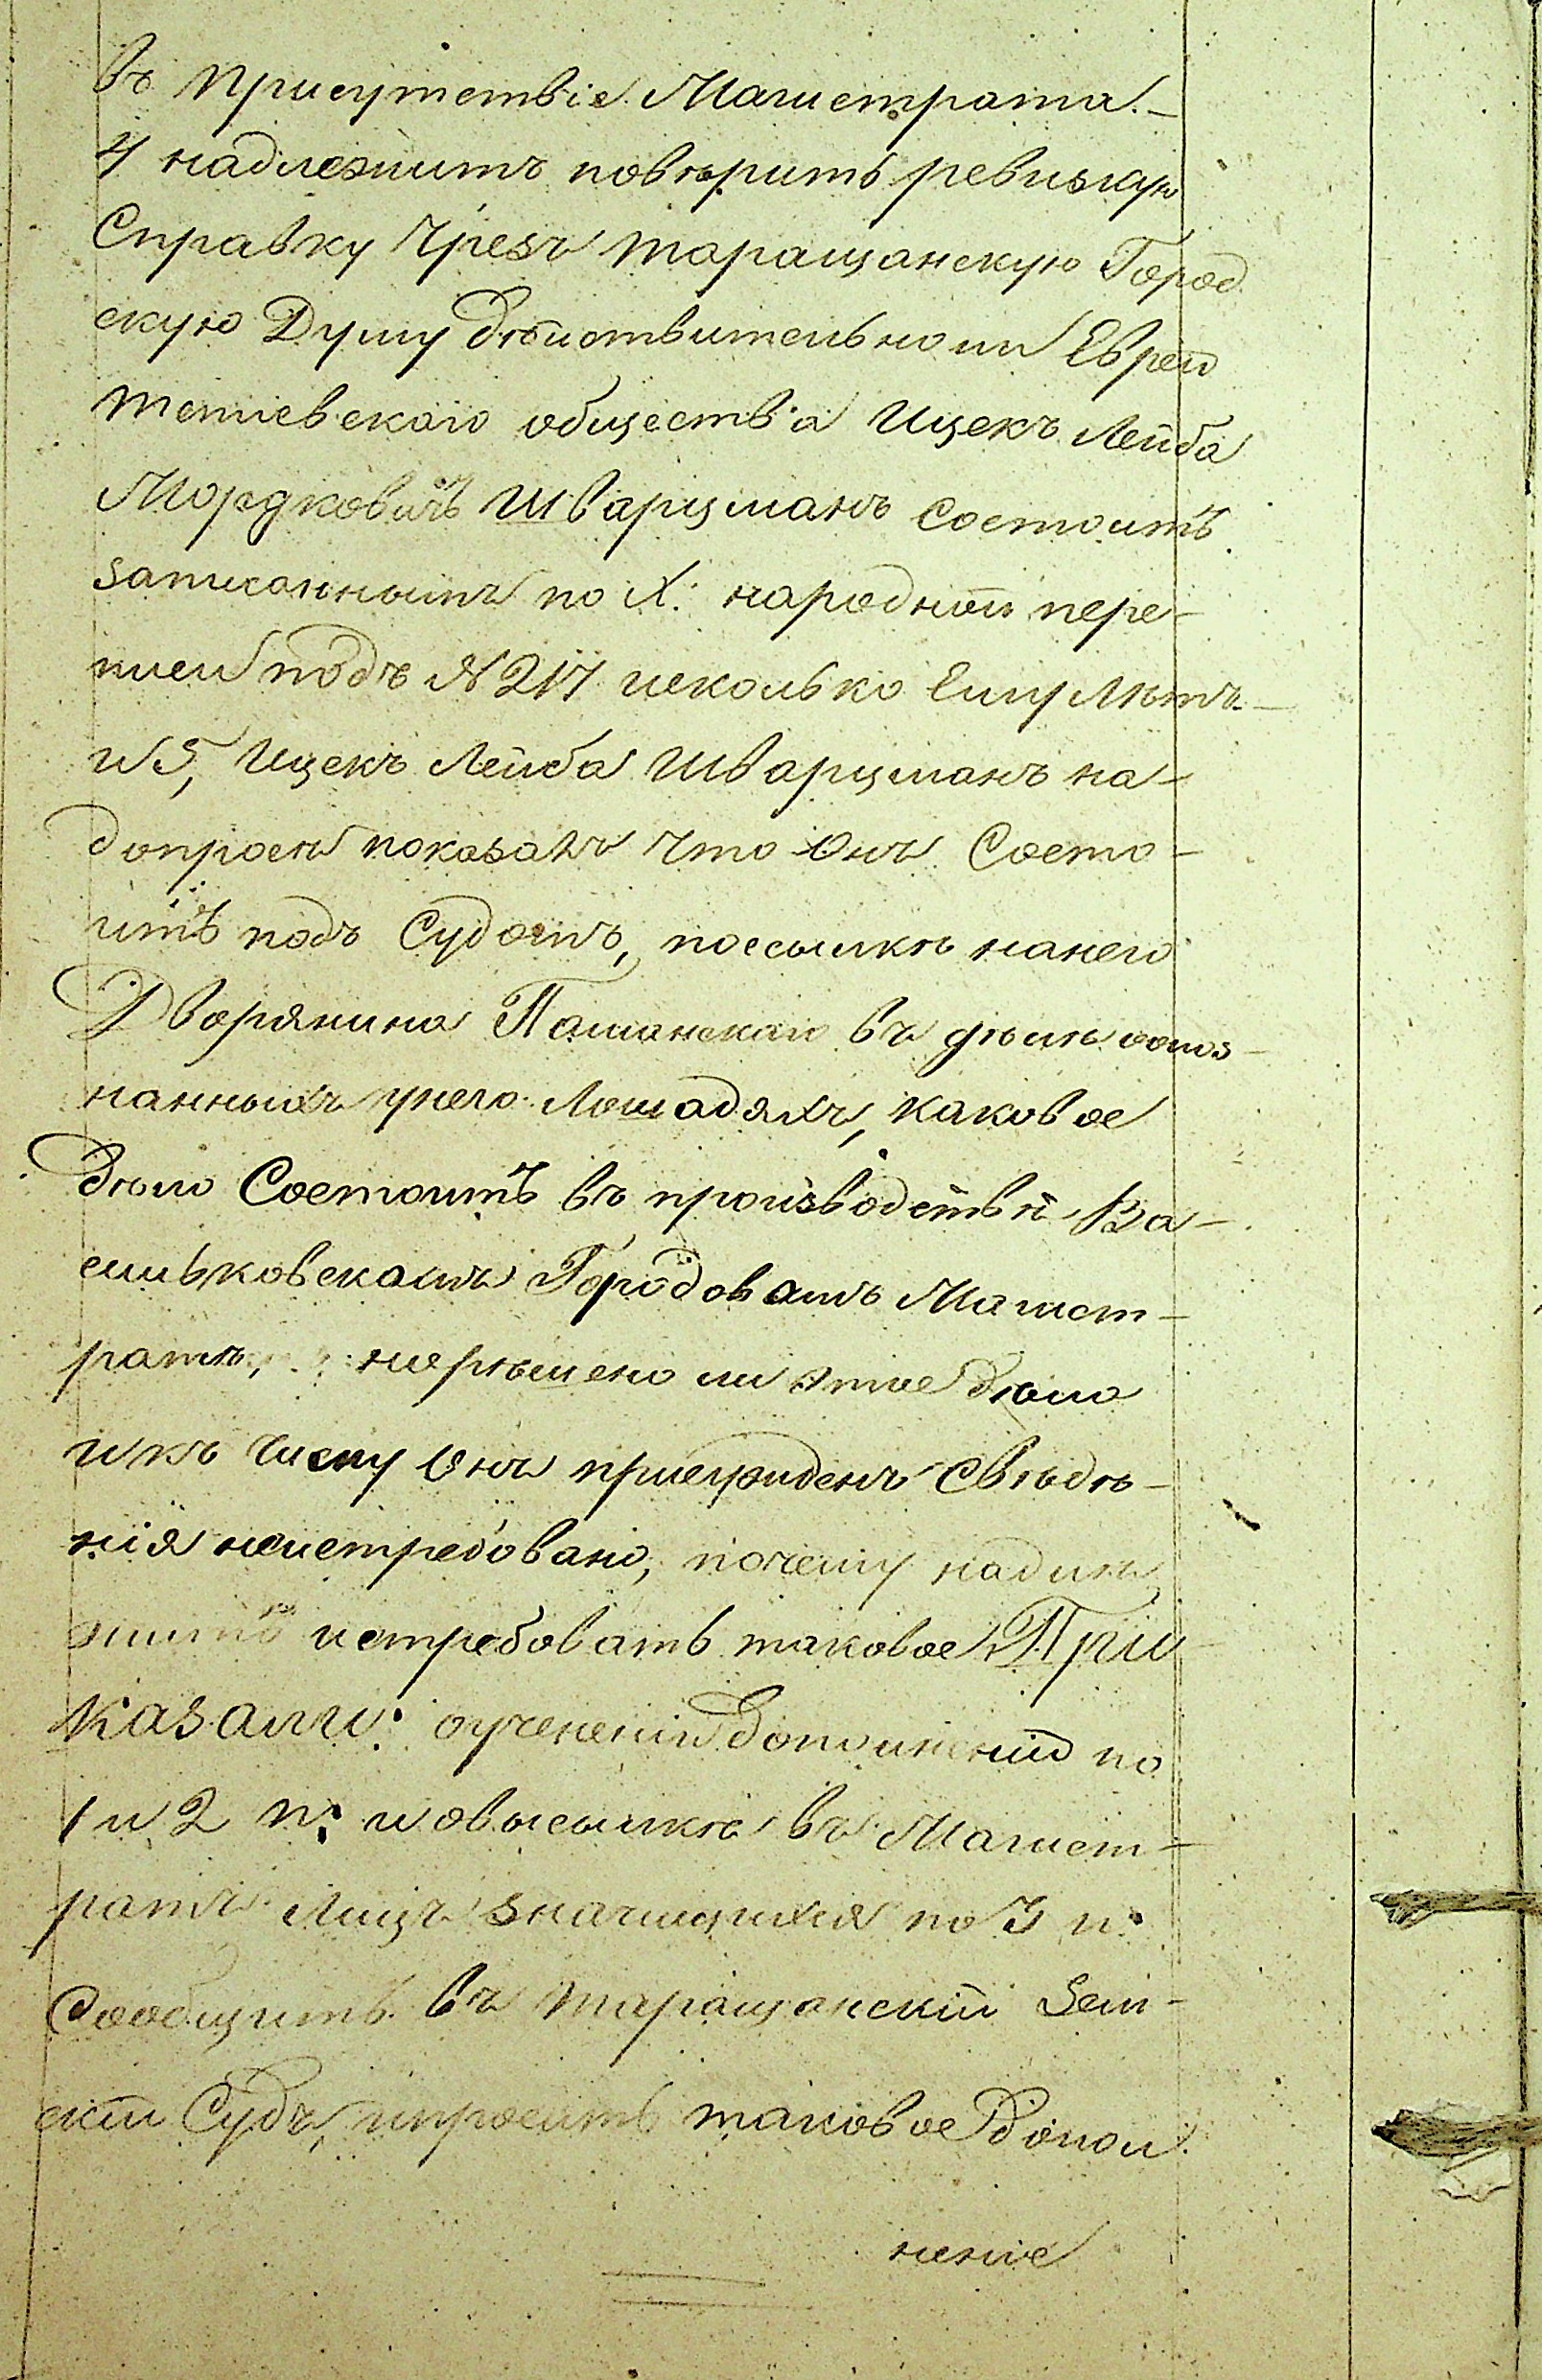 въ присутствіе Магистрата. –
4 надлежитъ повѣрить ревизкую
Справку Чрезъ Таращанскую Город
скую Думу дѣйствительно ли Еврей
Тетіевскаго общества Ицекъ Лейба
Мордковичъ Шварцманъ состоитъ
записаннымъ по X. народной пере-
писи подъ № 217 исколько Ему Лѣтъ –
и 5, Ицекъ Лейба Шварцманъ на-
допросѣ показалъ что Онъ Состо-
итъ подъ Судомъ, поссылкѣ нанего
Дворянина Пашанскаго въ дѣлѣ оопоз-
нанныхъ унего Лошадяхъ, каковое
дѣло Состоитъ въ производствѣ Ва-
сильковскомъ Городовомъ Магист-
ратѣ, нерѣшено ли этое дѣло
икъ чему Онъ присужденъ Свѣдѣ-
нія неистребовано, почему надлѣ
житъ истребовать таковое При
казали: оучененіи дополненій по
1 и 2 п: и овысылкѣ въ Магист-
ратъ Лицъ значащихся по 3 п:
Сообщить въ Таращанскій Зем-
скій Судъ, ипросить таковое Допол.
неніе